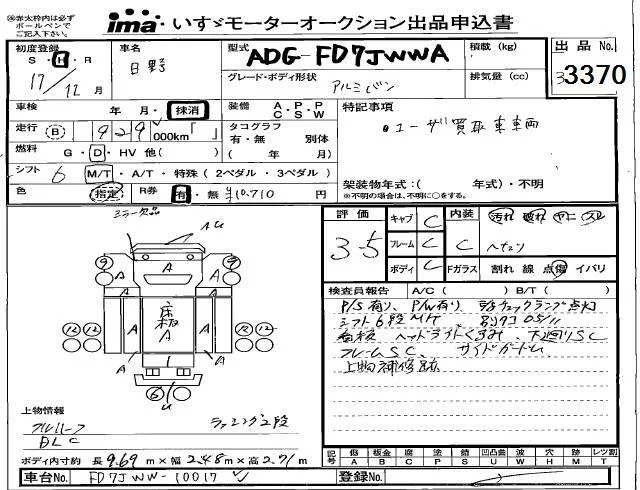 ㊟赤太枠内は必ず
ボールペンで
ご記入下さい。
ima いすゞモーターオークション出品申込書
初度登録 車名 型式 ADG-FD7JWWA 積載 (kg) 出品No.
S・H・R 日野 グレード・ボディ形状 排気量 (cc) 3370
17/12月 アルミバン
車検 年 月・抹消 装備 A・P・P C・S・W 特記事項
走行 B 929000km「 」 タコグラフ ユーザー買取車車両
有・無 別体
燃料 G・D・HV 他( ) ( 年 月)
シフト 6 M/T・A/T・特殊(2ペダル・3ペダル)
架装物年式:( 年式)・不明
色 指定 R券 有・無 ¥10.710円
※不明の場合は、不明に○をする。
ミラー欠品
評価 3-5 キャブ C 内装 C 汚れ 破れ ヤニ スレ
フレーム C ヘタリ
ボディ C Fガラス 割れ 線 点傷 イバリ
検査員報告 A/C( ) B/T( )
P/S有り、P/W有り チェックランプ点灯
シフト6段M/T
看板 ヘッドライトくすみ、下廻りSC
フレームSC、サイドガード
上物補修跡
AU
A
床板
A
U
上物情報
ラッシング2段
フルハーフ
DLC
ボディ内寸約 長9.69m×幅2.48m×高2.71m
記号 傷 A 板金 B 腐 C 塗 P 錆 S 凹凸曲 U 波 W 穴 H ム M レツ割 T
車台No. FD7JWW-10017 登録No.